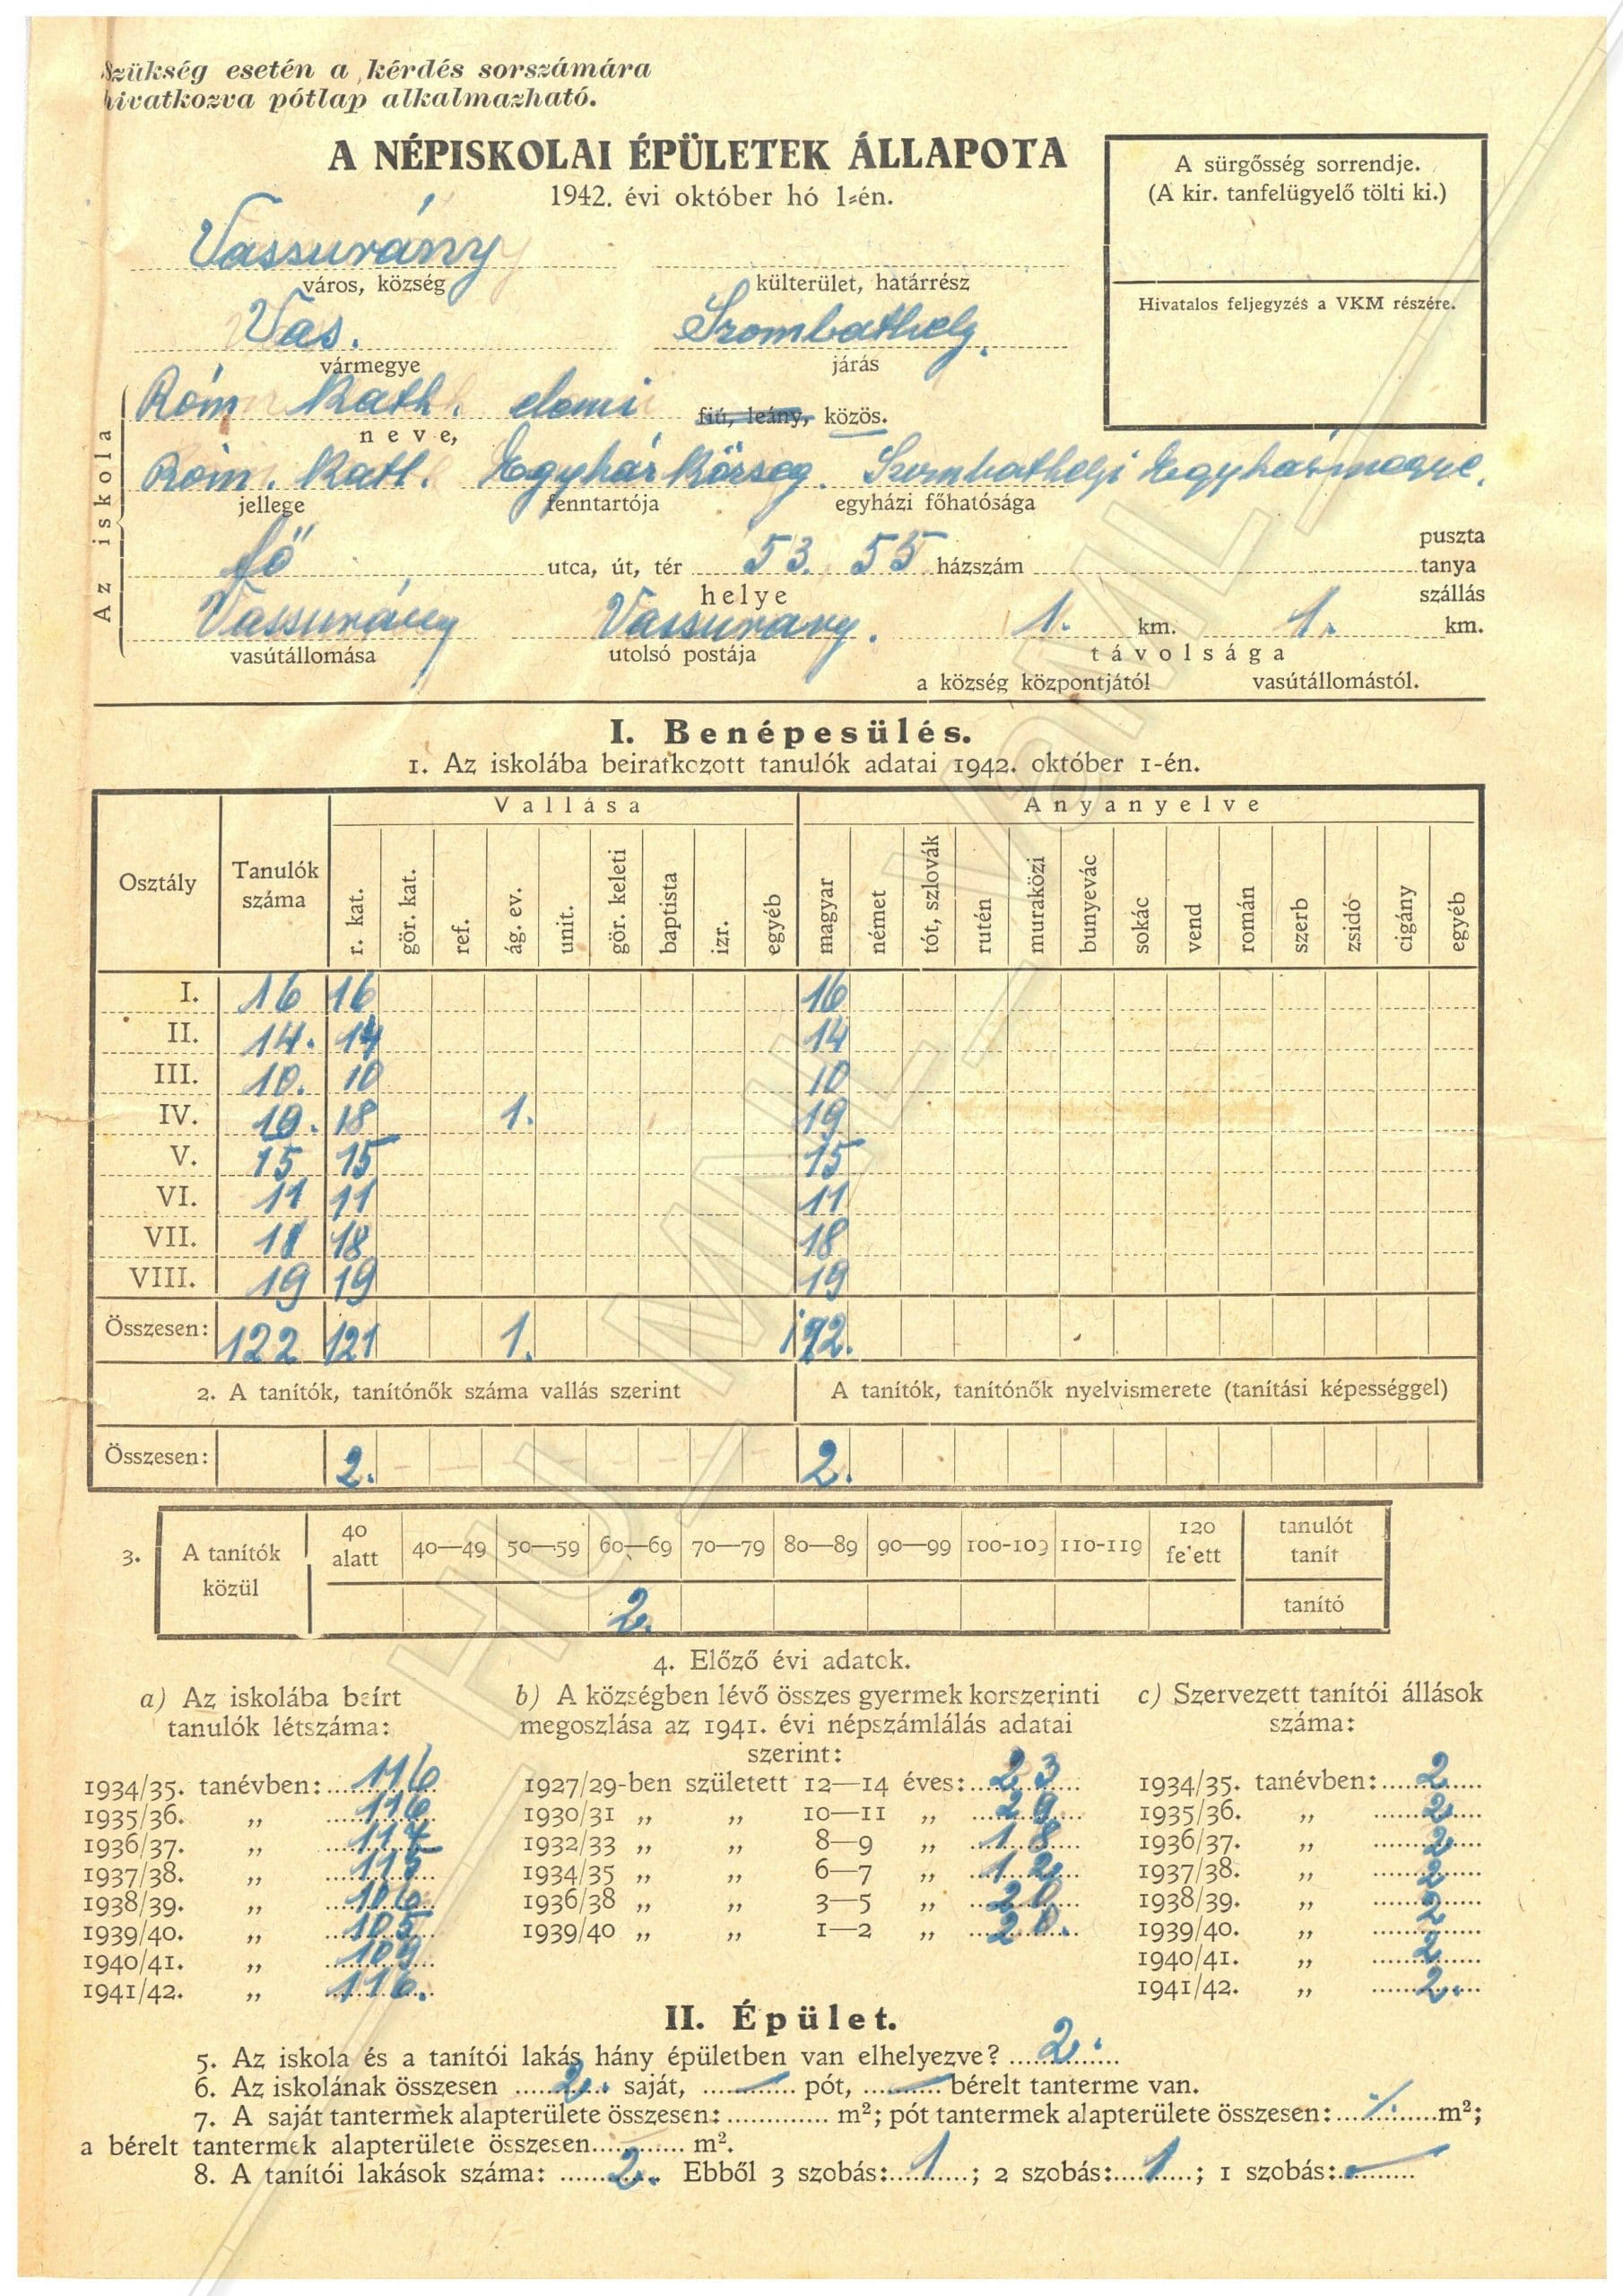 Szükség esetén a kérdés sorszámára
hivatkozva pótlap alkalmazható.
A NÉPISKOLAI ÉPÜLETEK ÁLLAPOTA
1942. évi október hó 1-én.
A sürgősség sorrendje.
(A kir. tanfelügyelő tölti ki.)
Hivatalos feljegyzés a VKM részére.
Vassurány
város, község
külterület, határrész
Vas. Szombathely.
vármegye
járás
Az iskola
Róm Kath. elemi fiú, leány, közös.
neve,
Róm. Kath. Egyház Község. Szombathelyi Egyházmegye.
jellege
fenntartója
egyházi főhatósága
Fő utca, út, tér 53. 55 házszám
puszta
tanya
szállás
helye
Vassurány Vassurány. 1. km. 1. km.
vasútállomása
utolsó postája
távolsága
a község központjától
vasútállomástól.
I. Benépesülés.
1. Az iskolába beiratkozott tanulók adatai 1942. október 1-én.
Osztály Tanulók száma Vallása Anyanyelve
r. kat. gör. kat. ref. ág. ev. unit. gör. keleti baptista izr. egyéb magyar német tót, szlovák rutén muraközi bunyevác sokác vend román szerb zsidó cigány egyéb
I. 16 16 16
II. 14. 14 14
III. 10. 10 10
IV. 19. 18 1. 19
V. 15 15 15
VI. 11 11 11
VII. 18 18 18
VIII. 19 19 19
Összesen: 122 121 1. 122.
2. A tanítók, tanítónők száma vallás szerint
A tanítók, tanítónők nyelvismerete (tanítási képességgel)
Összesen: 2. 2.
3. A tanítók közül
40 alatt 40—49 50—59 60—69 70—79 80—89 90—99 100-109 110-119 120 felett tanulót tanít
2. tanító
4. Előző évi adatok.
a) Az iskolába beírt
tanulók létszáma:
1934/35. tanévben: 116
1935/36. „ 116
1936/37. „ 117
1937/38. „ 115
1938/39. „ 106
1939/40. „ 105
1940/41. „ 109
1941/42. „ 116.
b) A községben lévő összes gyermek korszerinti
megoszlása az 1941. évi népszámlálás adatai
szerint:
1927/29-ben született 12—14 éves: 23
1930/31 „ „ 10—11 „ 29
1932/33 „ „ 8—9 „ 18
1934/35 „ „ 6—7 „ 12
1936/38 „ „ 3—5 „ 20
1939/40 „ „ 1—2 „ 20.
c) Szervezett tanítói állások
száma:
1934/35. tanévben: 2
1935/36. „ 2
1936/37. „ 2
1937/38. „ 2
1938/39. „ 2
1939/40. „ 2
1940/41. „ 2
1941/42. „ 2.
II. Épület.
5. Az iskola és a tanítói lakás hány épületben van elhelyezve? 2.
6. Az iskolának összesen 2. saját, — pót, — bérelt tanterme van.
7. A saját tantermek alapterülete összesen: m²; pót tantermek alapterülete összesen: ./. m²;
a bérelt tantermek alapterülete összesen m².
8. A tanítói lakások száma: 2. Ebből 3 szobás: 1; 2 szobás: 1; 1 szobás: —
HU_MNL_VaML